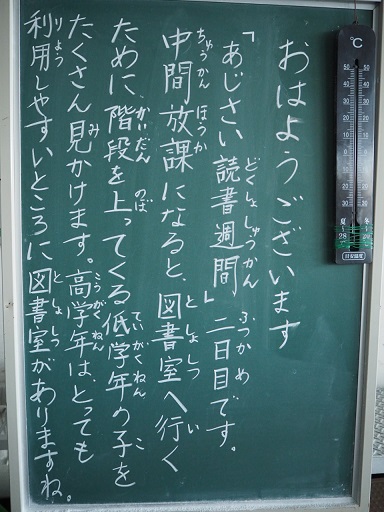 おはようございます
「あじさい読書週間」二日目です。
中間放課になると、図書室へ行く
ために、階段を上ってくる低学年の子を
たくさん見かけます。高学年は、とっても
利用しやすいところに図書室がありますね。
どくしょしゅうかん
ふつかめ
ちゅうかん
ほうか
としょしつ
い
かいだん
のぼ
ていがくねん
こ
み
こうがくねん
りよう
としょしつ
℃
50
40
30
20
10
0
10
20
30
夏
冬
目安温度